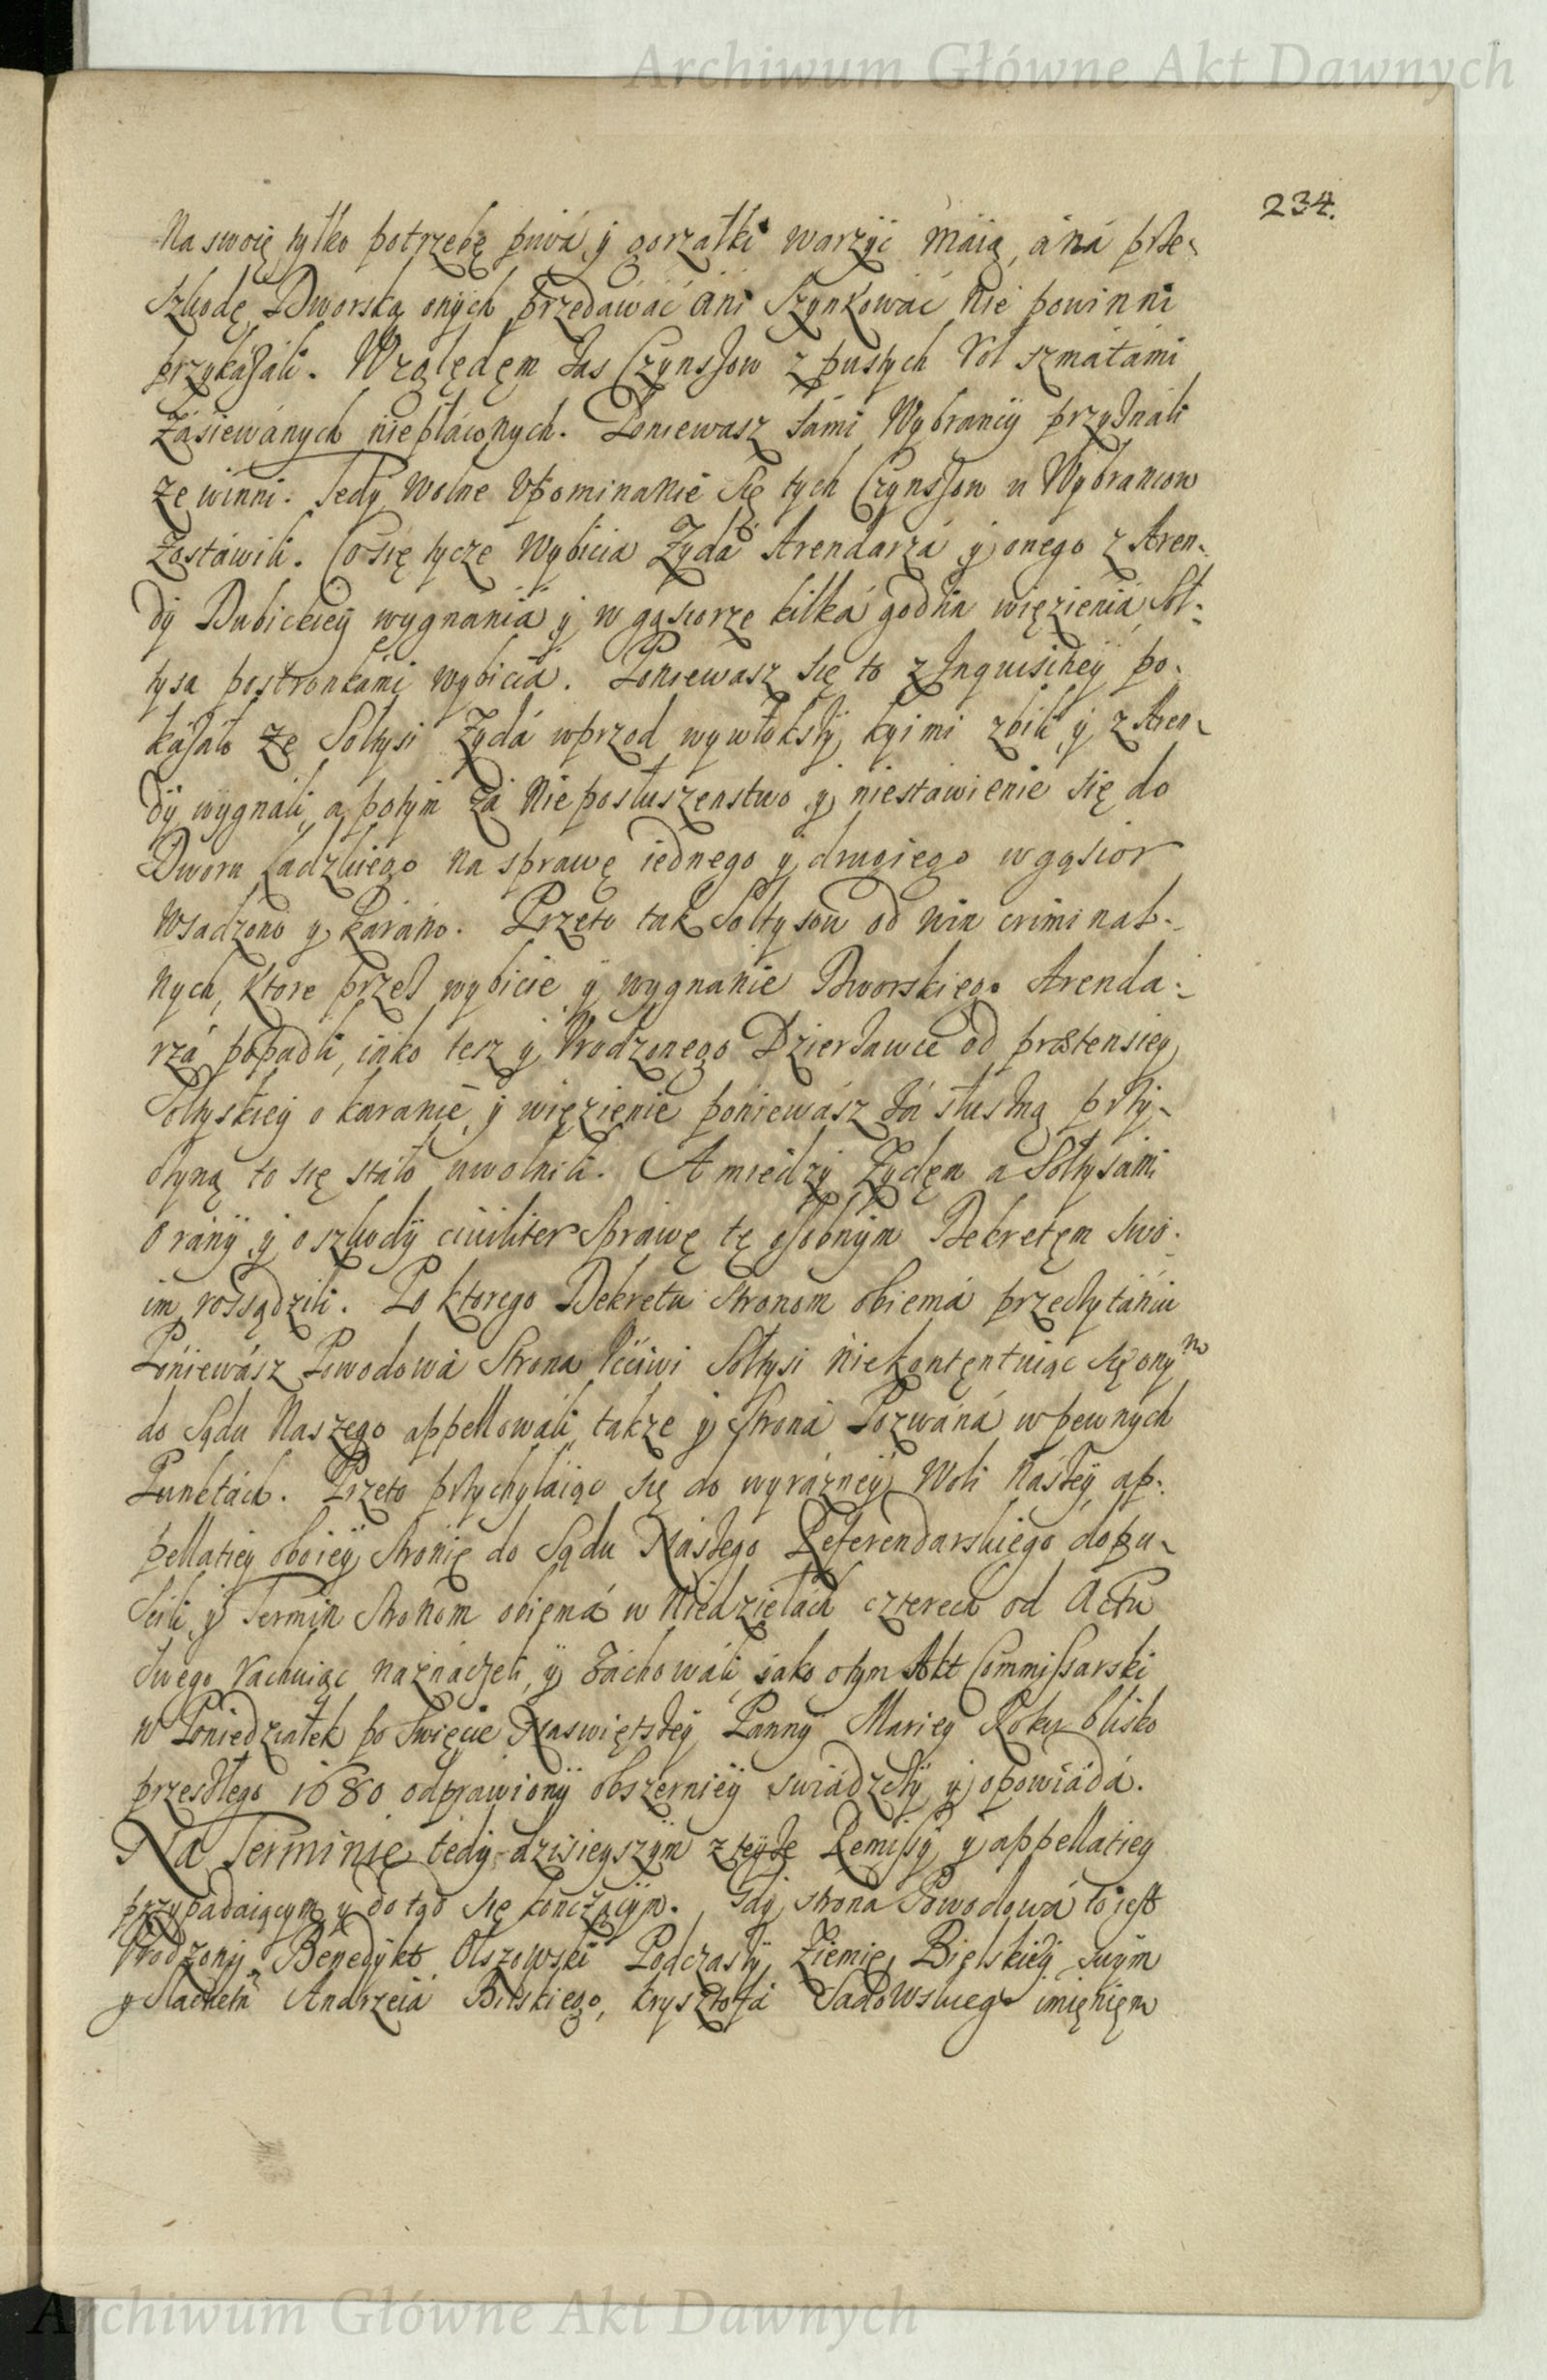 Archiwum Główne Akt Dawnych
234.
Na swoię tylko potrzebę piwá y gorzałki warzyć máią, á ná prze-
szkodę Dworską onych przedawáć áni szynkowáć nie powinni
przykázáli. Względem zas Czynszow z pustych Rol szmatámi
zásiewánych niepłáconych. Poniewasz sámi Wybrancy przyználi
ze winni. Tedy wolne Vpominanie się tych Czynszow u Wybrancow
zostáwili. Co się tycze Wybicia Zydá Arendarzá y onego z Aren-
dy Dubickiey wygnániá y w gąsiorze kilká godzin więzieniá Soł-
tysa postronkámi wybiciá. Poniewasz się to z Inquisitiey po-
kázáło ze Sołtysi Zydá wprzod wywłokszy kyimi zbili y z Aren-
dy wygnali, a potym zá nieposłuszenstwo y niestáwienie się do
Dworu Ładzkiego na sprawę iednego y drugiego w gąsior
wsadzono y karáno. Przeto tak Sołtysow od win criminal-
nych, ktore przez wybicie y wygnanie Dworskiego Arenda-
rzá popadli, iáko tesz y Vrodzonego Dzierzawcę od prætensiey
Sołtyskiey o karanie y więzienie poniewász zá słuszną przy-
czyną to się stáło uwolnili. A miedzy Zydem a Sołtysámi
o rány y o szkody ciuiliter Spráwę tę osobnym Dekretem swo-
im rossądzili. Po ktorego Dekretu stronom obiemá przeczytániu
Poniewász Powodowá Strona Vććiwi Sołtysi niekontentuiąc się onym
do Sądu Naszego appellowáli, takze y Stroná Pozwáná w pewnych
Punktách. Przeto przychyláiąc się do wyráżney Woli Nászey ap-
pellatiey oboiey stronie do Sądu Nászego Referendarskiego dopu-
ścili y Termin stronom obiemá w Niedzielách czterech od Actu
swego rachuiąc náznáczeli, y záchowáli, jako o tym Akt Commissarski
w Poniedziałek po Swięcie Naswiętszey Panny Mariey Roku blisko
przeszłego 1680 odprawiony obszerniey swiádczy y opowiádá.
Na Terminie tedy dzisieyszym z teyze Remissy y appellatiey
przypádáiącym y do tąd się kończącym. Gdy strona Powodowá to iest
Vrodzony Benedykt Olszowski Podczászy Ziemie Bielskiey swym
y Slachetn. Andrzeiá Bilskiego, Krysztofá Sadowskiego imieniem
Archiwum Główne Akt Dawnych